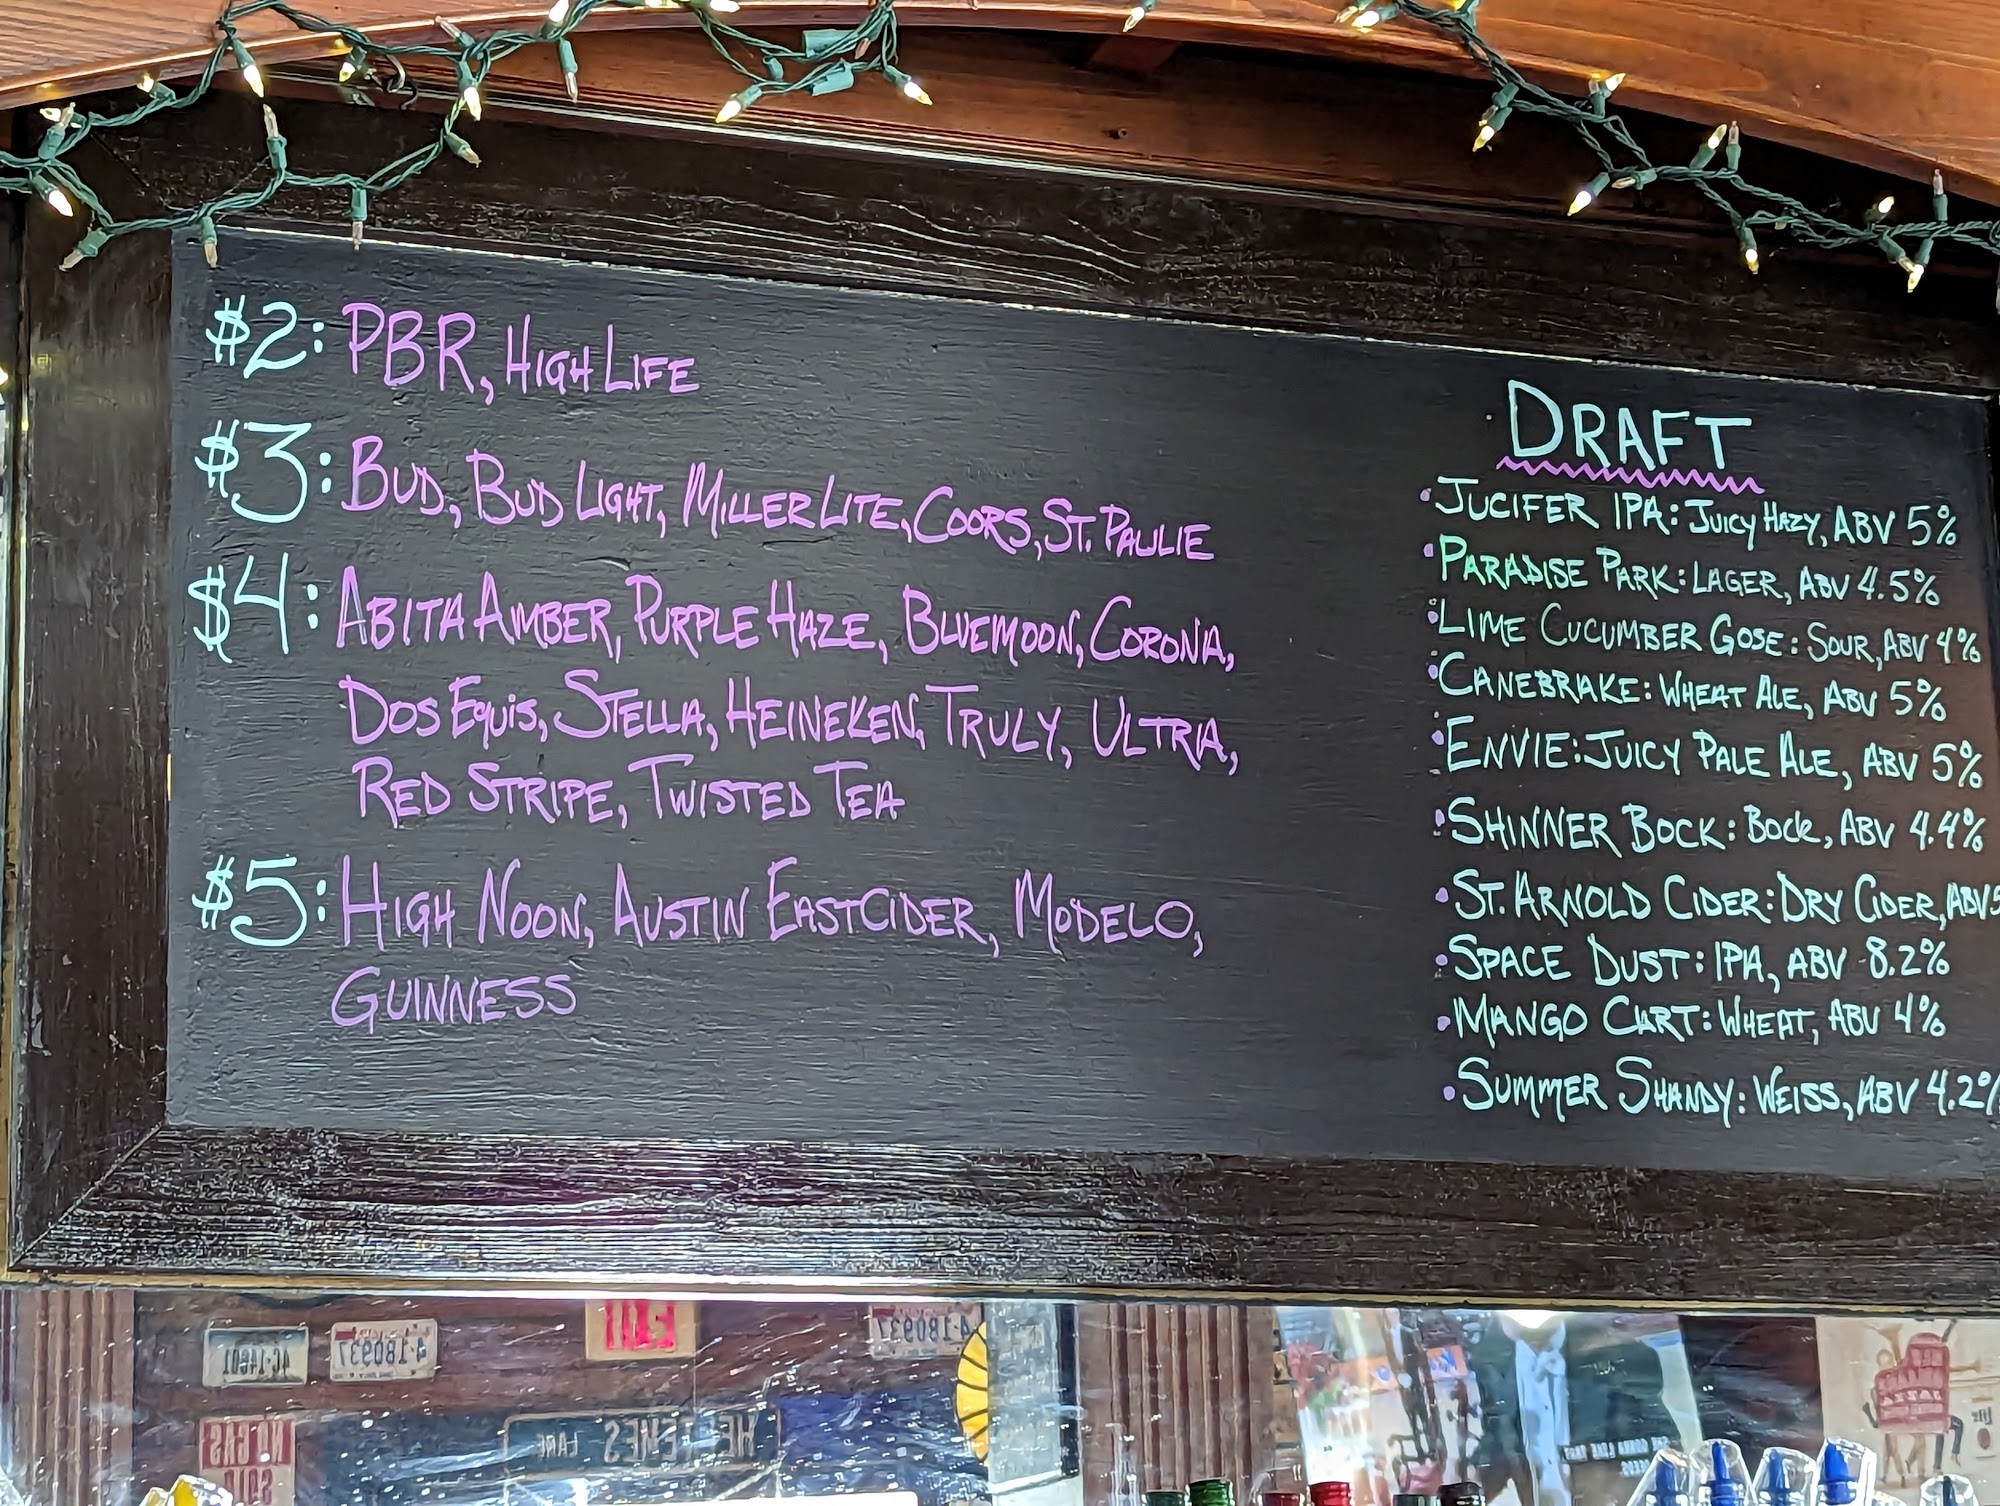 $2: PBR, HIGH LIFE
$3: BUD, BUD LIGHT, MILLER LITE, COORS, ST. PAULIE
$4: ABITA AMBER, PURPLE HAZE, BLUEMOON, CORONA,
DOS EQUIS, STELLA, HEINEKEN, TRULY, ULTRA,
RED STRIPE, TWISTED TEA
$5: HIGH NOON, AUSTIN EASTCIDER, MODELO,
GUINNESS
DRAFT
• JUCIFER IPA: JUICY HAZY, ABV 5%
• PARADISE PARK: LAGER, ABV 4.5%
• LIME CUCUMBER GOSE: SOUR, ABV 4%
• CANEBRAKE: WHEAT ALE, ABV 5%
• ENVIE: JUICY PALE ALE, ABV 5%
• SHINNER BOCK: BOCK, ABV 4.4%
• ST. ARNOLD CIDER: DRY CIDER, ABV 5
• SPACE DUST: IPA, ABV 8.2%
• MANGO CART: WHEAT, ABV 4%
• SUMMER SHANDY: WEISS, ABV 4.2%
EXIT
4-180937
4-180937
NO GAS
LANE